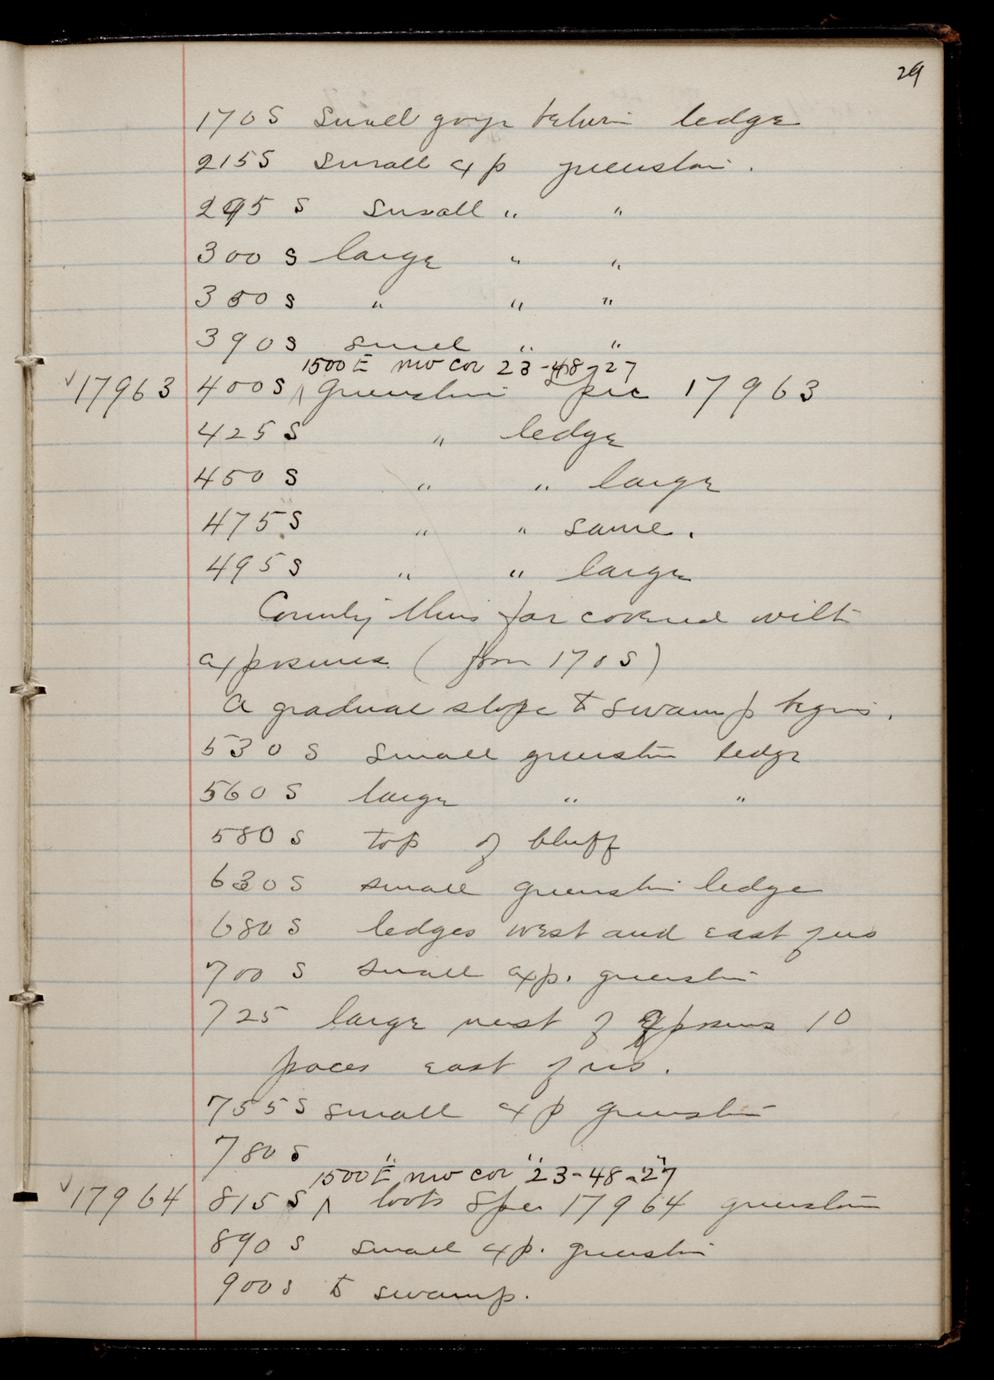 29
170 S small gorge between ledge
215 S small exp greenston.
295 S small " "
300 S large " "
350 S " " "
390 S small " "
1500 E NW Cor 23-48-27
√17963 400 S ^ greenston spec 17963
425 S " ledge
450 S " " large
475 S " " same.
495 S " " large
Country thus far covered with
exposures (from 170 S)
A gradual slope to swamp begins.
530 S small greenston ledge
560 S large " "
580 S top of bluff
630 S small greenston ledge
680 S ledges west and east of us
700 S small exp. greenston
725 large nest of exposures 10
paces east of us.
755 S small exp greenston
780 S " " "
1500 E NW Cor 23-48-27
√17964 815 S ^ took Spec 17964 greenston
890 S small exp. greenston
900 S to swamp.